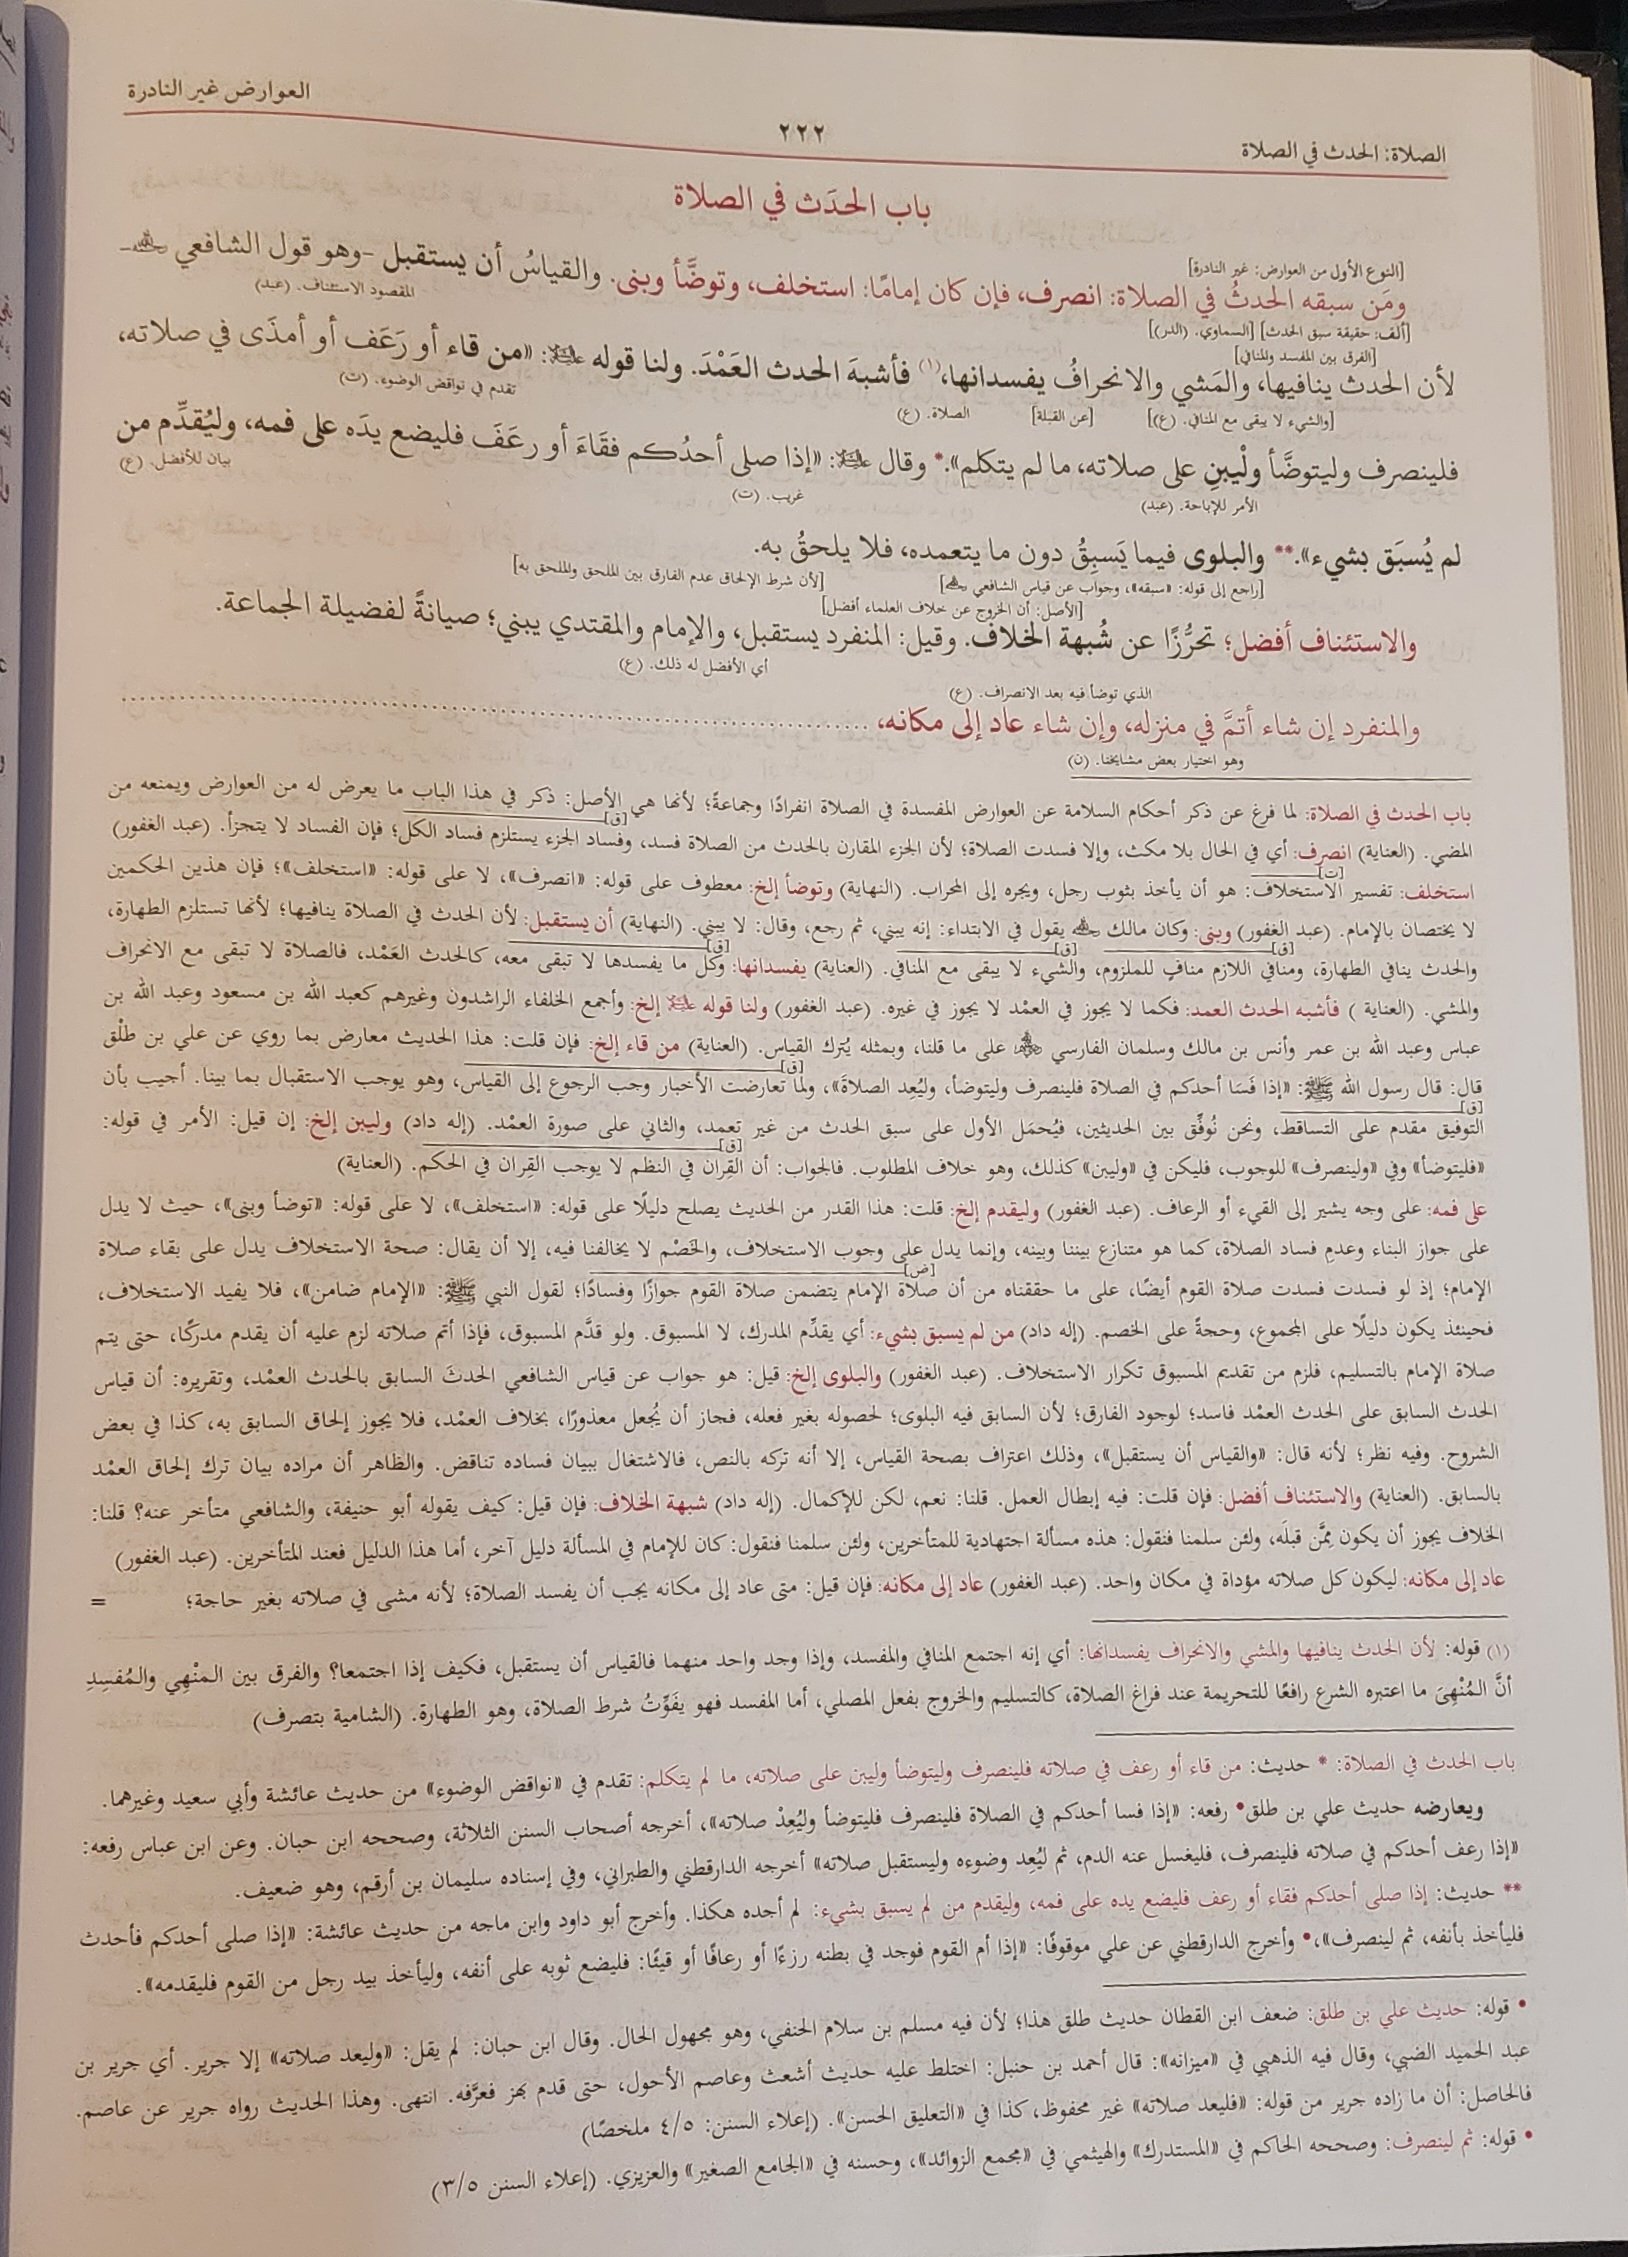 العوارض غير النادرة
٢٢٢
الصلاة: الحدث في الصلاة
باب الحدَث في الصلاة
[النوع الأول من العوارض: غير النادرة]
ومَن سبقه الحدثُ في الصلاة: انصرف، فإن كان إمامًا: استخلف، وتوضَّأ وبنى. والقياسُ أن يستقبل -وهو قول الشافعي رحمه الله-
[ألف: حقيقة سبق الحدث] [السماوي. (الدر)]
المقصود الاستئناف. (عبد)
[الفرق بين المفسد والمنافي]
لأن الحدث ينافيها، والمَشي والانحرافُ يفسدانها،(١) فأشبهَ الحدث العَمْدَ. ولنا قوله عليه السلام: «من قاء أو رَعَف أو أمذَى في صلاته،
[والشيء لا يبقى مع المنافي. (ع)]
[عن القبلة]
الصلاة. (ع)
تقدم في نواقض الوضوء. (ت)
فلينصرف وليتوضَّأ ولْيبنِ على صلاته، ما لم يتكلم».* وقال عليه السلام: «إذا صلى أحدُكم فقَاءَ أو رعَفَ فليضع يدَه على فمه، وليُقدِّم من
الأمر للإباحة. (عبد)
غريب. (ت)
بيان للأفضل. (ع)
لم يُسبَق بشيء».** والبلوى فيما يَسبِقُ دون ما يتعمده، فلا يلحقُ به.
[راجع إلى قوله: «سبقه»، وجواب عن قياس الشافعي رحمه الله]
[لأن شرط الإلحاق عدم الفارق بين الملحق والملحق به]
[الأصل: أن الخروج عن خلاف العلماء أفضل]
والاستئناف أفضل؛ تحرُّزًا عن شُبهة الخلاف. وقيل: المنفرد يستقبل، والإمام والمقتدي يبني؛ صيانةً لفضيلة الجماعة.
أي الأفضل له ذلك. (ع)
الذي توضأ فيه بعد الانصراف. (ع)
والمنفرد إن شاء أتمَّ في منزله، وإن شاء عاد إلى مكانه،
وهو اختيار بعض مشايخنا. (ن)
باب الحدث في الصلاة: لما فرغ عن ذكر أحكام السلامة عن العوارض المفسدة في الصلاة انفرادًا وجماعةً؛ لأنها هي الأصل: ذكر في هذا الباب ما يعرض له من العوارض ويمنعه من
المضي. (العناية) انصرف: أي في الحال بلا مكث، وإلا فسدت الصلاة؛ لأن الجزء المقارن بالحدث من الصلاة فسد، وفساد الجزء يستلزم فساد الكل؛ فإن الفساد لا يتجزأ. (عبد الغفور)
استخلف: تفسير الاستخلاف: هو أن يأخذ بثوب رجل، ويجره إلى المحراب. (النهاية) وتوضأ إلخ: معطوف على قوله: «انصرف»، لا على قوله: «استخلف»؛ فإن هذين الحكمين
لا يختصان بالإمام. (عبد الغفور) وبنى: وكان مالك رحمه الله يقول في الابتداء: إنه يبني، ثم رجع، وقال: لا يبني. (النهاية) أن يستقبل: لأن الحدث في الصلاة ينافيها؛ لأنها تستلزم الطهارة،
والحدث ينافي الطهارة، ومنافي اللازم منافٍ للملزوم، والشيء لا يبقى مع المنافي. (العناية) يفسدانها: وكل ما يفسدها لا تبقى معه، كالحدث العَمْد، فالصلاة لا تبقى مع الانحراف
والمشي. (العناية ) فأشبه الحدث العمد: فكما لا يجوز في العمْد لا يجوز في غيره. (عبد الغفور) ولنا قوله عليه السلام إلخ: وأجمع الخلفاء الراشدون وغيرهم كعبد الله بن مسعود وعبد الله بن
عباس وعبد الله بن عمر وأنس بن مالك وسلمان الفارسي رضي الله عنهم على ما قلنا، وبمثله يُترك القياس. (العناية) من قاء إلخ: فإن قلت: هذا الحديث معارض بما روي عن علي بن طلْق
قال: قال رسول الله ﷺ: «إذا فَسَا أحدكم في الصلاة فلينصرف وليتوضأ، وليُعِد الصلاةَ»، ولما تعارضت الأخبار وجب الرجوع إلى القياس، وهو يوجب الاستقبال بما بينا. أجيب بأن
التوفيق مقدم على التساقط، ونحن نُوفِّق بين الحديثين، فيُحمَل الأول على سبق الحدث من غير تعمد، والثاني على صورة العمْد. (إله داد) وليبن إلخ: إن قيل: الأمر في قوله:
«فليتوضأ» وفي «ولينصرف» للوجوب، فليكن في «وليبن» كذلك، وهو خلاف المطلوب. فالجواب: أن القِران في النظم لا يوجب القِران في الحكم. (العناية)
على فمه: على وجه يشير إلى القيء أو الرعاف. (عبد الغفور) وليقدم إلخ: قلت: هذا القدر من الحديث يصلح دليلًا على قوله: «استخلف»، لا على قوله: «توضأ وبنى»، حيث لا يدل
على جواز البناء وعدم فساد الصلاة، كما هو متنازع بيننا وبينه، وإنما يدل على وجوب الاستخلاف، والخَصْم لا يخالفنا فيه، إلا أن يقال: صحة الاستخلاف يدل على بقاء صلاة
الإمام؛ إذ لو فسدت فسدت صلاة القوم أيضًا، على ما حققناه من أن صلاة الإمام يتضمن صلاة القوم جوازًا وفسادًا؛ لقول النبي ﷺ: «الإمام ضامن»، فلا يفيد الاستخلاف،
فحينئذ يكون دليلًا على المجموع، وحجةً على الخصم. (إله داد) من لم يسبق بشيء: أي يقدِّم المدرك، لا المسبوق. ولو قدَّم المسبوق، فإذا أتم صلاته لزم عليه أن يقدم مدركًا، حتى يتم
صلاة الإمام بالتسليم، فلزم من تقديم المسبوق تكرار الاستخلاف. (عبد الغفور) والبلوى إلخ: قيل: هو جواب عن قياس الشافعي الحدثَ السابق بالحدث العمْد، وتقريره: أن قياس
الحدث السابق على الحدث العمْد فاسد؛ لوجود الفارق؛ لأن السابق فيه البلوى؛ لحصوله بغير فعله، فجاز أن يُجعل معذورًا، بخلاف العمْد، فلا يجوز إلحاق السابق به، كذا في بعض
الشروح. وفيه نظر؛ لأنه قال: «والقياس أن يستقبل»، وذلك اعتراف بصحة القياس، إلا أنه تركه بالنص، فالاشتغال ببيان فساده تناقض. والظاهر أن مراده بيان ترك إلحاق العمْد
بالسابق. (العناية) والاستئناف أفضل: فإن قلت: فيه إبطال العمل. قلنا: نعم، لكن للإكمال. (إله داد) شبهة الخلاف: فإن قيل: كيف يقوله أبو حنيفة، والشافعي متأخر عنه؟ قلنا:
الخلاف يجوز أن يكون مِمَّن قبلَه، ولئن سلمنا فنقول: هذه مسألة اجتهادية للمتأخرين، ولئن سلمنا فنقول: كان للإمام في المسألة دليل آخر، أما هذا الدليل فعند المتأخرين. (عبد الغفور)
عاد إلى مكانه: ليكون كل صلاته مؤداة في مكان واحد. (عبد الغفور) عاد إلى مكانه: فإن قيل: متى عاد إلى مكانه يجب أن يفسد الصلاة؛ لأنه مشى في صلاته بغير حاجة؛ =
(١) قوله: لأن الحدث ينافيها والمشي والانحراف يفسدانها: أي إنه اجتمع المنافي والمفسد، وإذا وجد واحد منهما فالقياس أن يستقبل، فكيف إذا اجتمعا؟ والفرق بين المنْهِي والمُفسِدِ
أنَّ المُنْهِيَ ما اعتبره الشرع رافعًا للتحريمة عند فراغ الصلاة، كالتسليم والخروج بفعل المصلي، أما المفسد فهو يفَوِّتُ شرط الصلاة، وهو الطهارة. (الشامية بتصرف)
باب الحدث في الصلاة: * حديث: من قاء أو رعف في صلاته فلينصرف وليتوضأ وليبن على صلاته، ما لم يتكلم: تقدم في «نواقض الوضوء» من حديث عائشة وأبي سعيد وغيرهما.
ويعارضه حديث علي بن طلق• رفعه: «إذا فسا أحدكم في الصلاة فلينصرف فليتوضأ وليُعِدْ صلاته»، أخرجه أصحاب السنن الثلاثة، وصححه ابن حبان. وعن ابن عباس رفعه:
«إذا رعف أحدكم في صلاته فلينصرف، فليغسل عنه الدم، ثم ليُعِد وضوءه وليستقبل صلاته» أخرجه الدارقطني والطبراني، وفي إسناده سليمان بن أرقم، وهو ضعيف.
** حديث: إذا صلى أحدكم فقاء أو رعف فليضع يده على فمه، وليقدم من لم يسبق بشيء: لم أجده هكذا. وأخرج أبو داود وابن ماجه من حديث عائشة: «إذا صلى أحدكم فأحدث
فليأخذ بأنفه، ثم لينصرف»،• وأخرج الدارقطني عن علي موقوفًا: «إذا أم القوم فوجد في بطنه رزءًا أو رعافًا أو قيئًا: فليضع ثوبه على أنفه، وليأخذ بيد رجل من القوم فليقدمه».
• قوله: حديث علي بن طلق: ضعف ابن القطان حديث طلق هذا؛ لأن فيه مسلم بن سلام الحنفي، وهو مجهول الحال. وقال ابن حبان: لم يقل: «وليعد صلاته» إلا جرير. أي جرير بن
عبد الحميد الضبي، وقال فيه الذهبي في «ميزانه»: قال أحمد بن حنبل: اختلط عليه حديث أشعث وعاصم الأحول، حتى قدم بهز فعرَّفه. انتهى. وهذا الحديث رواه جرير عن عاصم.
فالحاصل: أن ما زاده جرير من قوله: «فليعد صلاته» غير محفوظ، كذا في «التعليق الحسن». (إعلاء السنن: ٤/٥ ملخصًا)
• قوله: ثم لينصرف: وصححه الحاكم في «المستدرك» والهيثمي في «مجمع الزوائد»، وحسنه في «الجامع الصغير» والعزيزي. (إعلاء السنن ٣/٥)